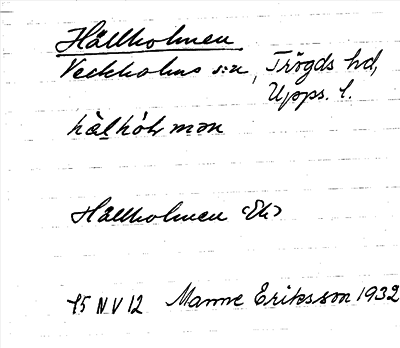 Hållholmen
Veckholms s:n, Trögds hd,
Upps. l.
Hållholmen
75 NV 12 Manne Eriksson 1932